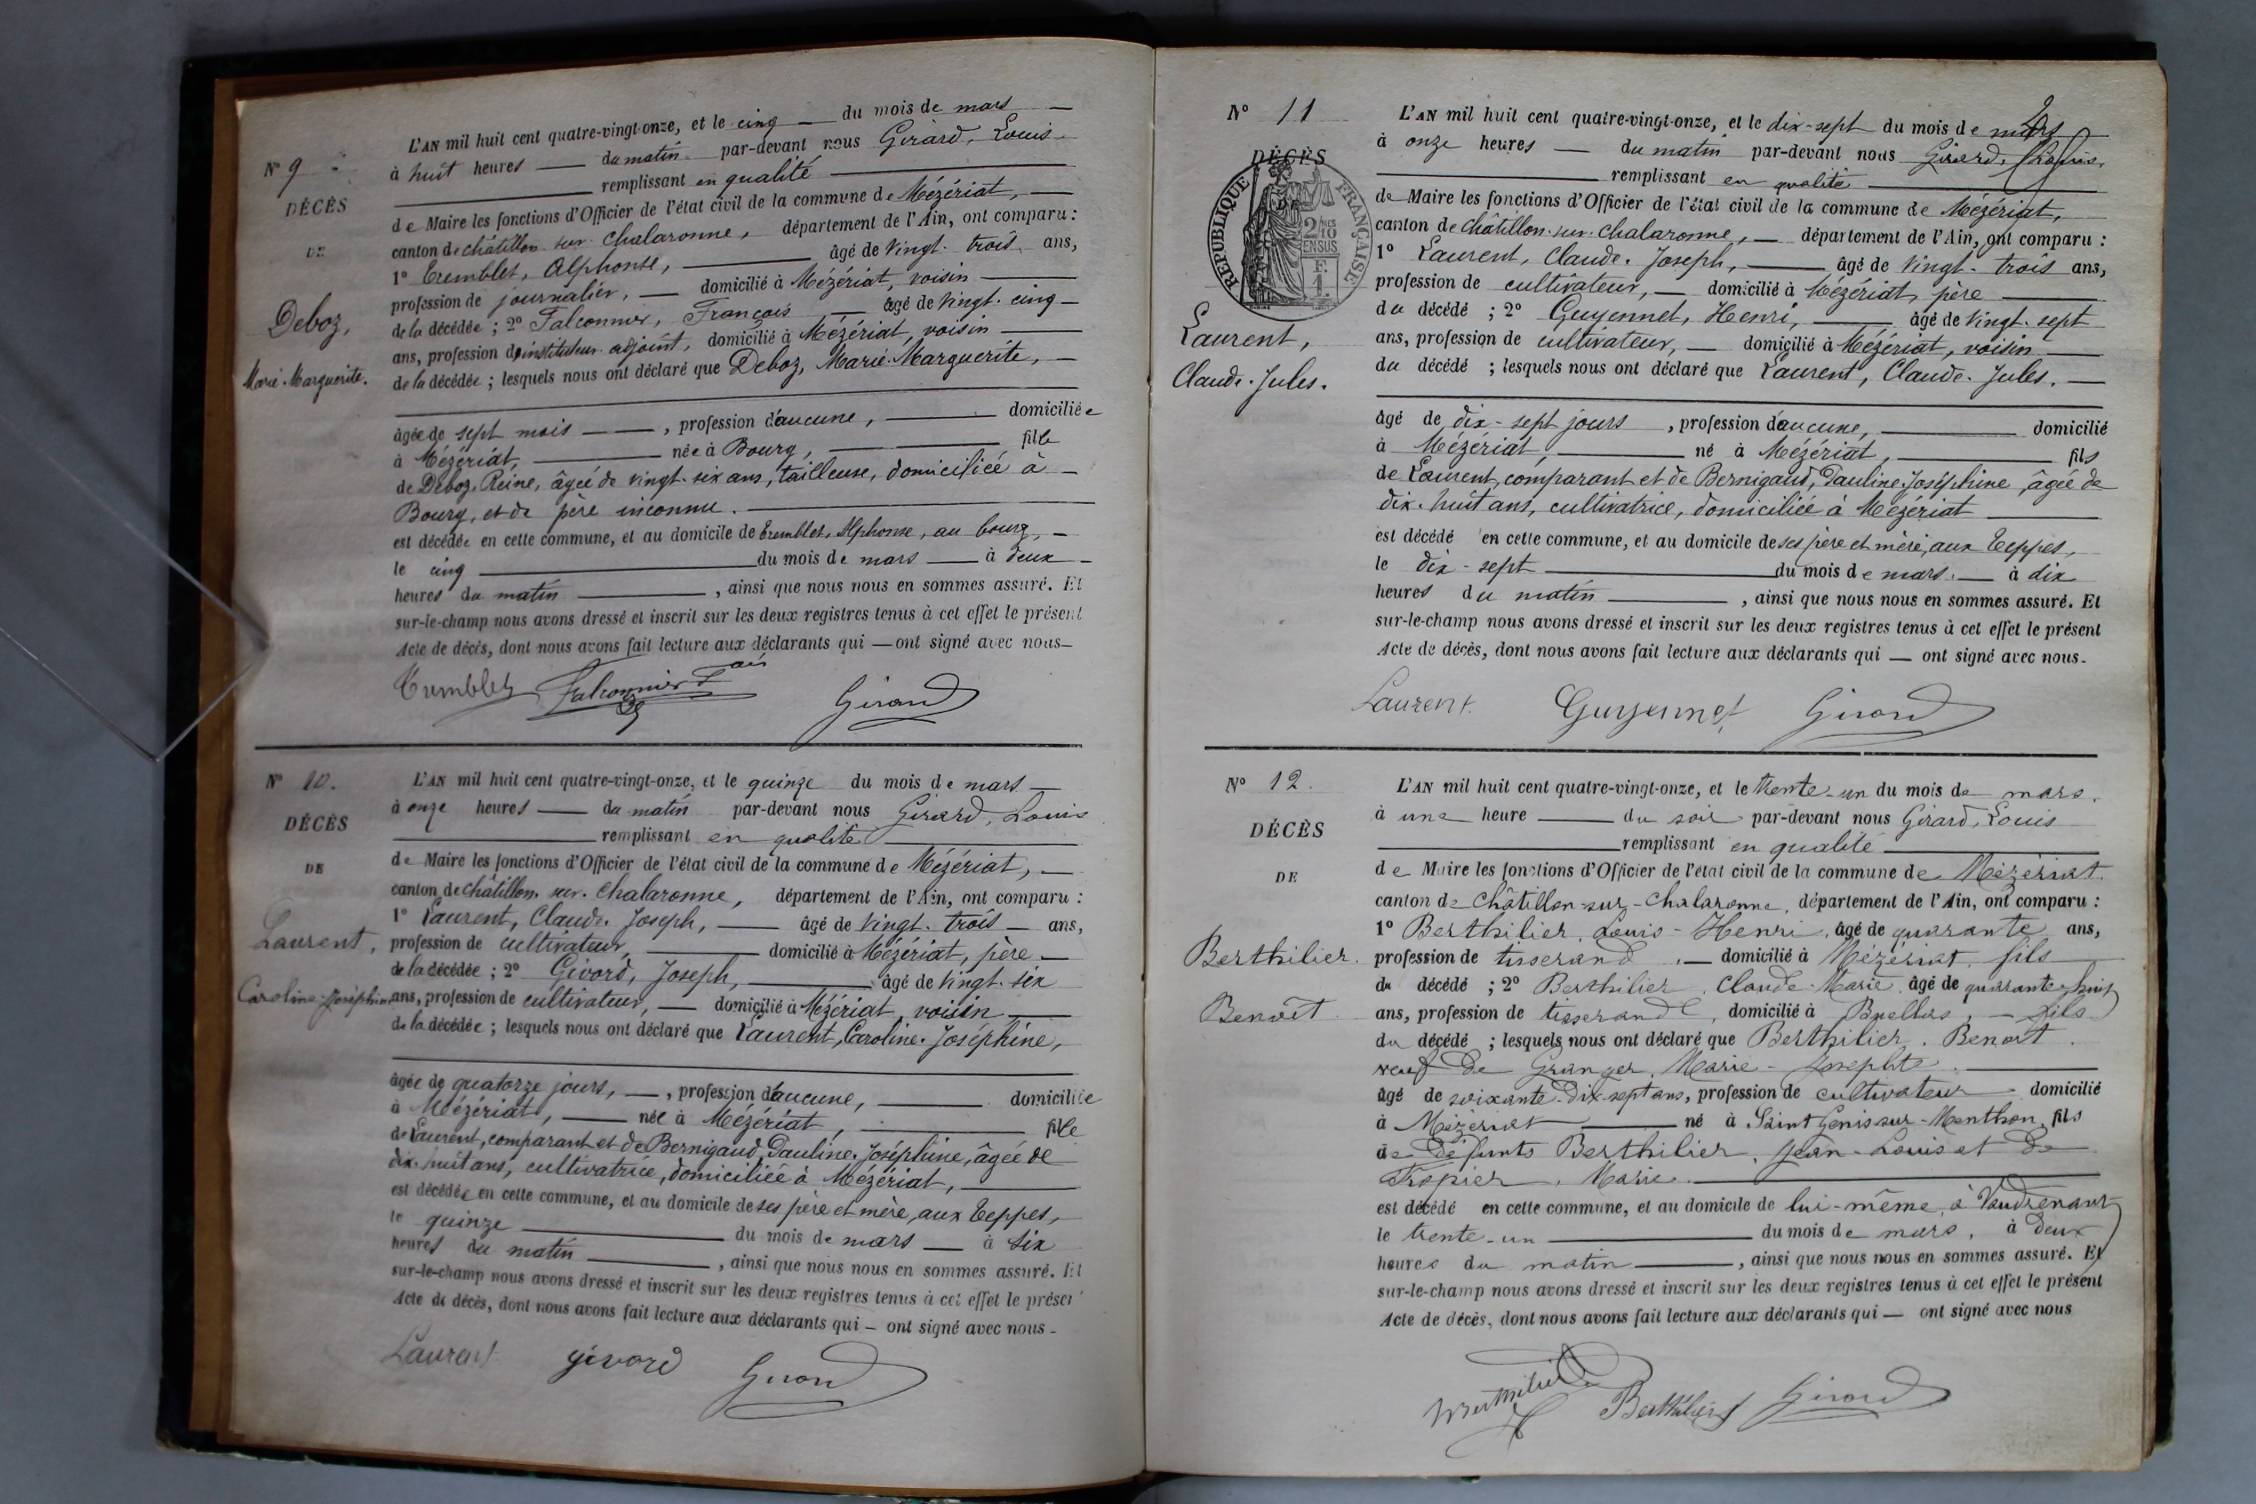 N° 9
DÉCÈS
DE
Deboz,
Marie-Marguerite.
L'AN mil huit cent quatre-vingt-onze, et le cinq — du mois de mars —
à huit heures — du matin par-devant nous Girard, Louis
— remplissant en qualité —
de Maire les fonctions d'Officier de l'état civil de la commune de Mézériat, —
canton de châtillon sur Chalaronne, département de l'Ain, ont comparu :
1° Tremblet, Alphonse, — âgé de vingt-trois ans,
profession de journalier, — domicilié à Mézériat, voisin —
de la décédée ; 2° Falconnier, François — âgé de vingt-cinq —
ans, profession d'instituteur adjoint, domicilié à Mézériat, voisin —
de la décédée ; lesquels nous ont déclaré que Deboz, Marie-Marguerite, —
âgée de sept mois —, profession d'aucune, — domiciliée
à Mézériat, — née à Bourg, — fille
de Deboz, Reine, âgée de vingt-six ans, tailleuse, domiciliée à —
Bourg, et de père inconnu. —
est décédée en cette commune, et au domicile de Tremblet, Alphonse, au bourg, —
le cinq — du mois de mars — à deux —
heures du matin —, ainsi que nous nous en sommes assuré. Et
sur-le-champ nous avons dressé et inscrit sur les deux registres tenus à cet effet le présent
Acte de décès, dont nous avons fait lecture aux déclarants qui — ont signé avec nous —
Tremblet Falconnier Fçois Girard
N° 10.
DÉCÈS
DE
Laurent,
Caroline-Joséphine
L'AN mil huit cent quatre-vingt-onze, et le quinze du mois de mars —
à onze heures — du matin par-devant nous Girard, Louis
— remplissant en qualité —
de Maire les fonctions d'Officier de l'état civil de la commune de Mézériat, —
canton de châtillon sur Chalaronne, département de l'Ain, ont comparu :
1° Laurent, Claude-Joseph, — âgé de vingt-trois — ans,
profession de cultivateur, — domicilié à Mézériat, père —
de la décédée ; 2° Givord, Joseph, — âgé de vingt-six
ans, profession de cultivateur, — domicilié à Mézériat, voisin —
de la décédée ; lesquels nous ont déclaré que Laurent, Caroline-Joséphine,
âgée de quatorze jours, —, profession d'aucune, — domiciliée
à Mézériat, — née à Mézériat, — fille
de Laurent, comparant et de Bernigaud, Pauline-Joséphine, âgée de
dix-huit ans, cultivatrice, domiciliée à Mézériat, —
est décédée en cette commune, et au domicile de ses père et mère, aux Teppes, —
le quinze — du mois de mars — à six
heures du matin —, ainsi que nous nous en sommes assuré. Et
sur-le-champ nous avons dressé et inscrit sur les deux registres tenus à cet effet le présent
Acte de décès, dont nous avons fait lecture aux déclarants qui — ont signé avec nous —
Laurent givord Girard
N° 11
DÉCÈS
DE
RÉPUBLIQUE FRANÇAISE
2/10 EN SUS
F. 1.
Laurent,
Claude-Jules.
L'AN mil huit cent quatre-vingt-onze, et le dix-sept du mois de mars
à onze heures — du matin par-devant nous Girard, Louis.
— remplissant en qualité —
de Maire les fonctions d'Officier de l'état civil de la commune de Mézériat,
canton de châtillon-sur-Chalaronne, — département de l'Ain, ont comparu :
1° Laurent, Claude-Joseph, — âgé de vingt-trois ans,
profession de cultivateur, — domicilié à Mézériat, père —
du décédé ; 2° Guyennet, Henri, — âgé de vingt-sept
ans, profession de cultivateur, — domicilié à Mézériat, voisin —
du décédé ; lesquels nous ont déclaré que Laurent, Claude-Jules. —
âgé de dix-sept jours, profession d'aucune, — domicilié
à Mézériat, — né à Mézériat, — fils
de Laurent, comparant et de Bernigaud, Pauline-Joséphine, âgée de
dix-huit ans, cultivatrice, domiciliée à Mézériat —
est décédé en cette commune, et au domicile de ses père et mère, aux Teppes,
le dix-sept — du mois de mars. — à dix
heures du matin —, ainsi que nous nous en sommes assuré. Et
sur-le-champ nous avons dressé et inscrit sur les deux registres tenus à cet effet le présent
Acte de décès, dont nous avons fait lecture aux déclarants qui — ont signé avec nous.
Laurent Guyennet Girard
N° 12.
DÉCÈS
DE
Berthilier.
Benoît
L'AN mil huit cent quatre-vingt-onze, et le trente-un du mois de mars.
à une heure — du soir par-devant nous Girard, Louis
— remplissant en qualité —
de Maire les fonctions d'Officier de l'état civil de la commune de Mézériat.
canton de Châtillon-sur-Chalaronne, département de l'Ain, ont comparu :
1° Berthilier, Louis-Henri, âgé de quarante ans,
profession de tisserand, — domicilié à Mézériat, fils
du décédé ; 2° Berthilier, Claude-Marie âgé de quarante-huit
ans, profession de tisserand, domicilié à Buellas, — fils
du décédé ; lesquels nous ont déclaré que Berthilier, Benoît.
veuf de Granger, Marie-Josephte. —
âgé de soixante-dix-sept ans, profession de cultivateur — domicilié
à Mézériat — né à Saint Genis sur-Menthon, fils
de défunts Berthilier, Jean-Louis et de
Tropier, Marie. —
est décédé en cette commune, et au domicile de lui-même, à Vaudrenant
le trente-un — du mois de mars, à deux
heures du matin —, ainsi que nous nous en sommes assuré. Et
sur-le-champ nous avons dressé et inscrit sur les deux registres tenus à cet effet le présent
Acte de décès, dont nous avons fait lecture aux déclarants qui — ont signé avec nous
Berthilier Berthilier Girard